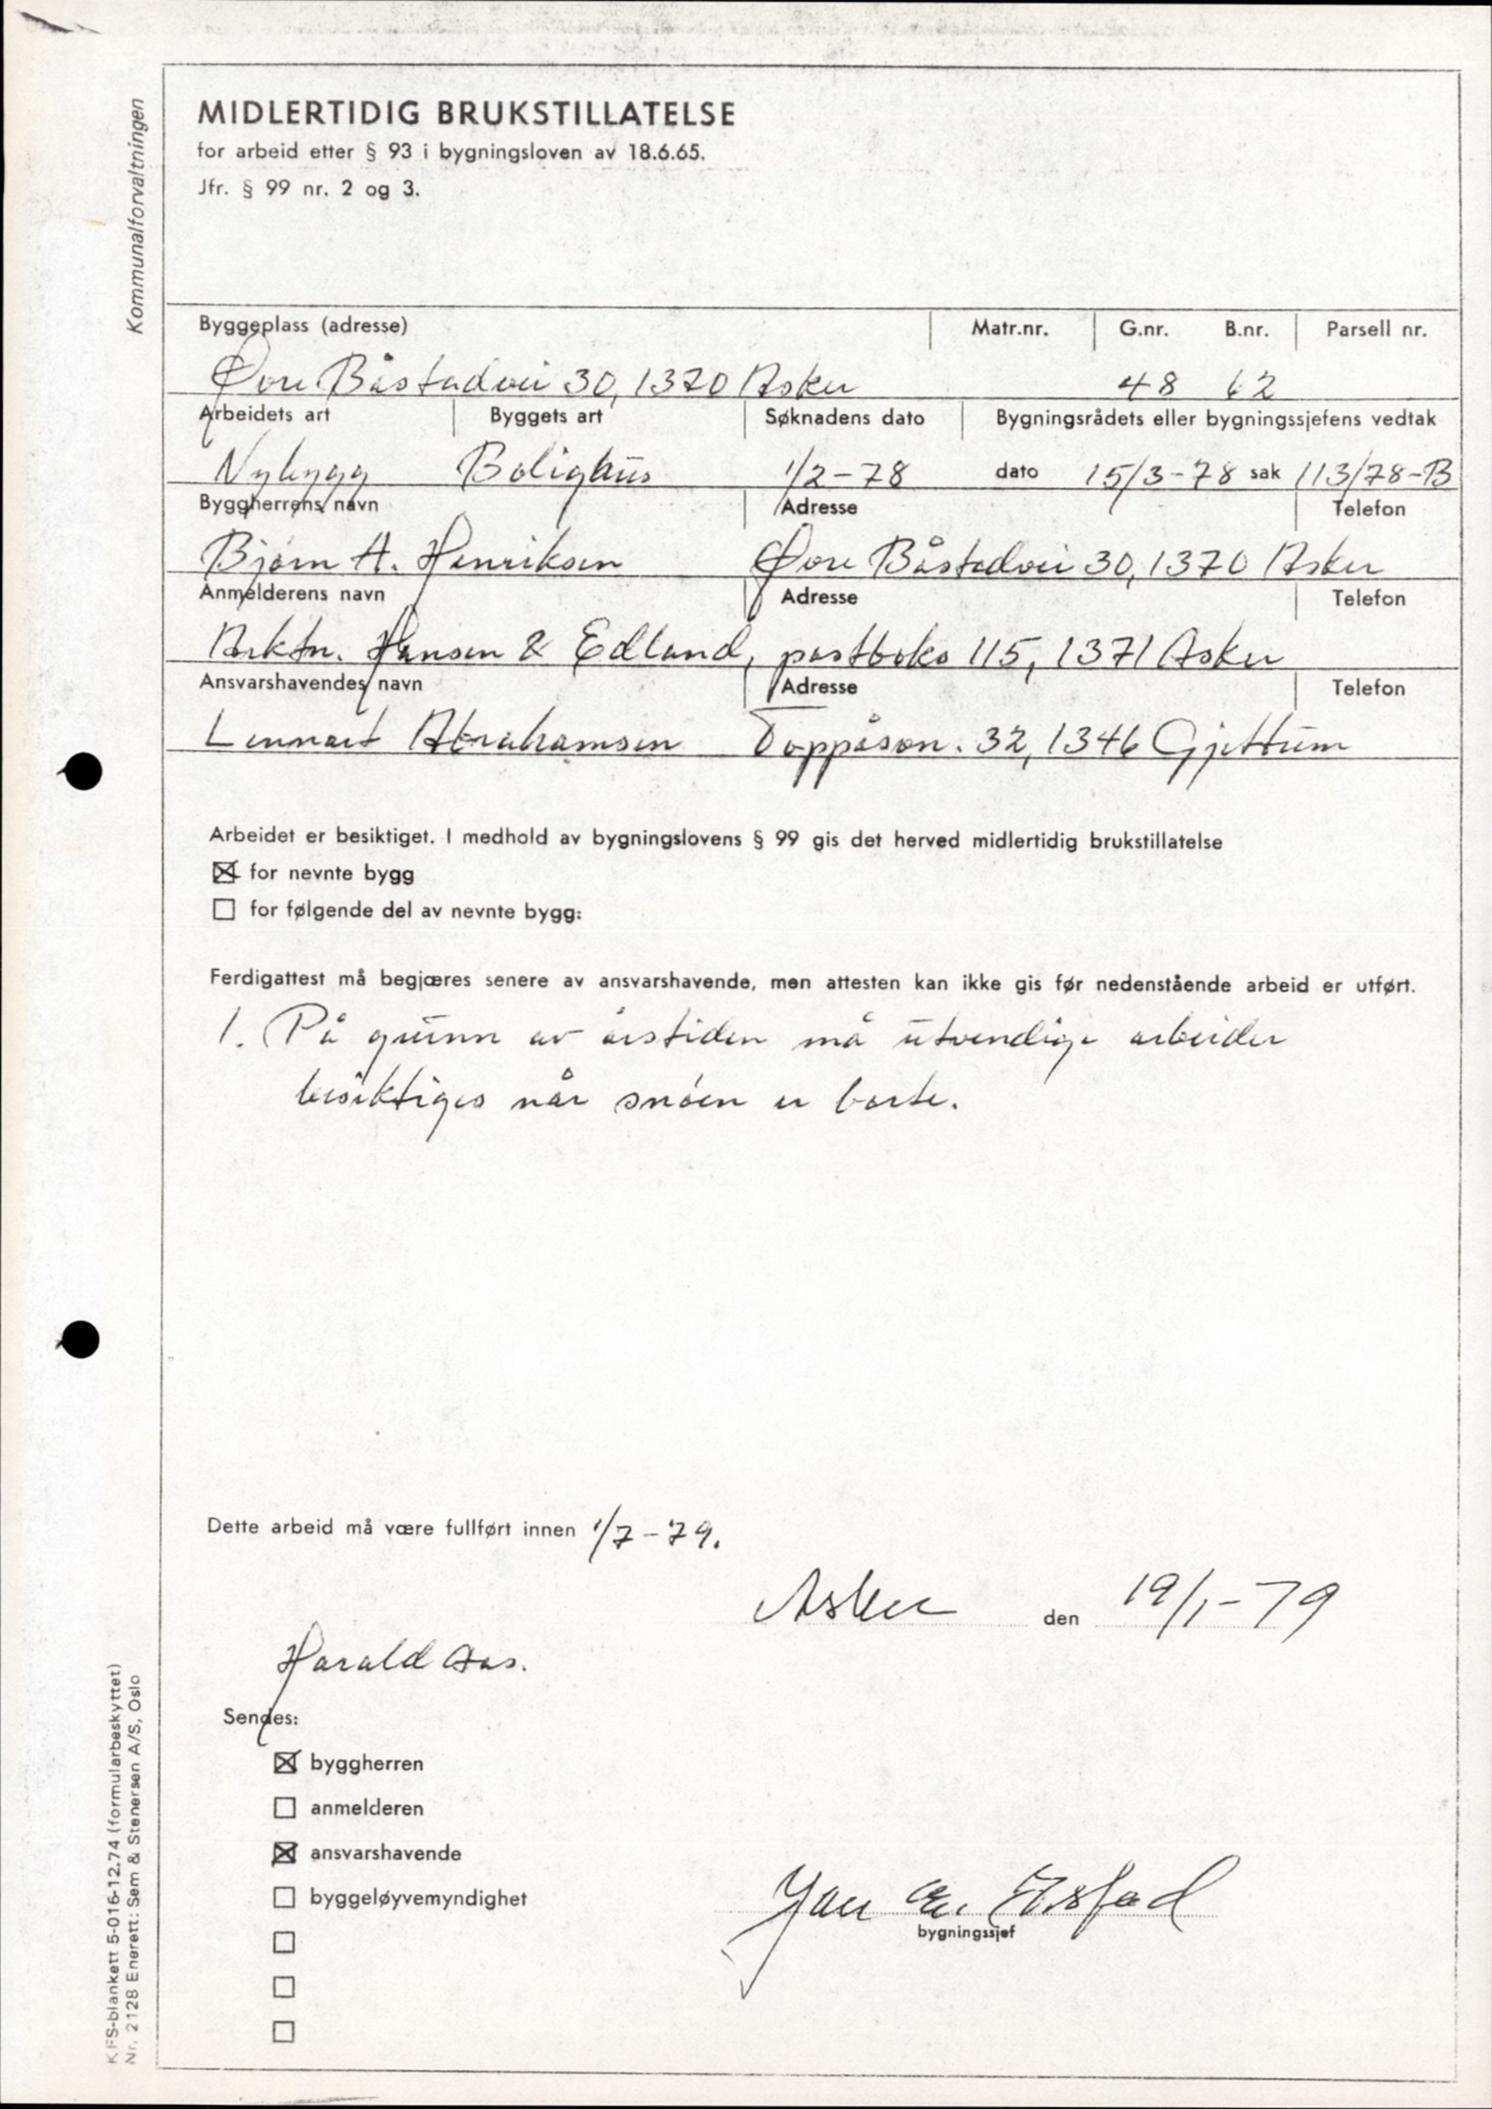 Kommunalforvaltningen
MIDLERTIDIG BRUKSTILLATELSE
for arbeid etter § 93 i bygningsloven av 18.6.65.
Jfr. § 99 nr. 2 og 3.
Byggeplass (adresse) Matr.nr. G.nr. B.nr. Parsell nr.
Øvre Båstadvei 30, 1370 Asker 48 62
Arbeidets art Byggets art Søknadens dato Bygningsrådets eller bygningssjefens vedtak
Nybygg Bolighus 1/2-78 dato 15/3-78 sak 113/78-B
Byggherrens navn Adresse Telefon
Bjørn A. Henriksen Øvre Båstadvei 30, 1370 Asker
Anmelderens navn Adresse Telefon
Arktn. Hansen & Edland, postboks 115, 1371 Asker
Ansvarshavendes navn Adresse Telefon
Lennart Abrahamsen Toppåsen. 32, 1346 Gjettum
Arbeidet er besiktiget. I medhold av bygningslovens § 99 gis det herved midlertidig brukstillatelse
for nevnte bygg
for følgende del av nevnte bygg:
Ferdigattest må begjæres senere av ansvarshavende, men attesten kan ikke gis før nedenstående arbeid er utført.
1. På grunn av årstiden må utvendige arbeider
besiktiges når snøen er borte.
Dette arbeid må være fullført innen 1/7-79.
Asker den 19/1-79
Harald Aas.
Sendes:
byggherren
anmelderen
ansvarshavende
byggeløyvemyndighet
Jan
bygningssjef
KFS-blankett 5-016-12.74 (formularbeskyttet)
Nr. 2128 Enerett: Sem & Stenersen A/S, Oslo